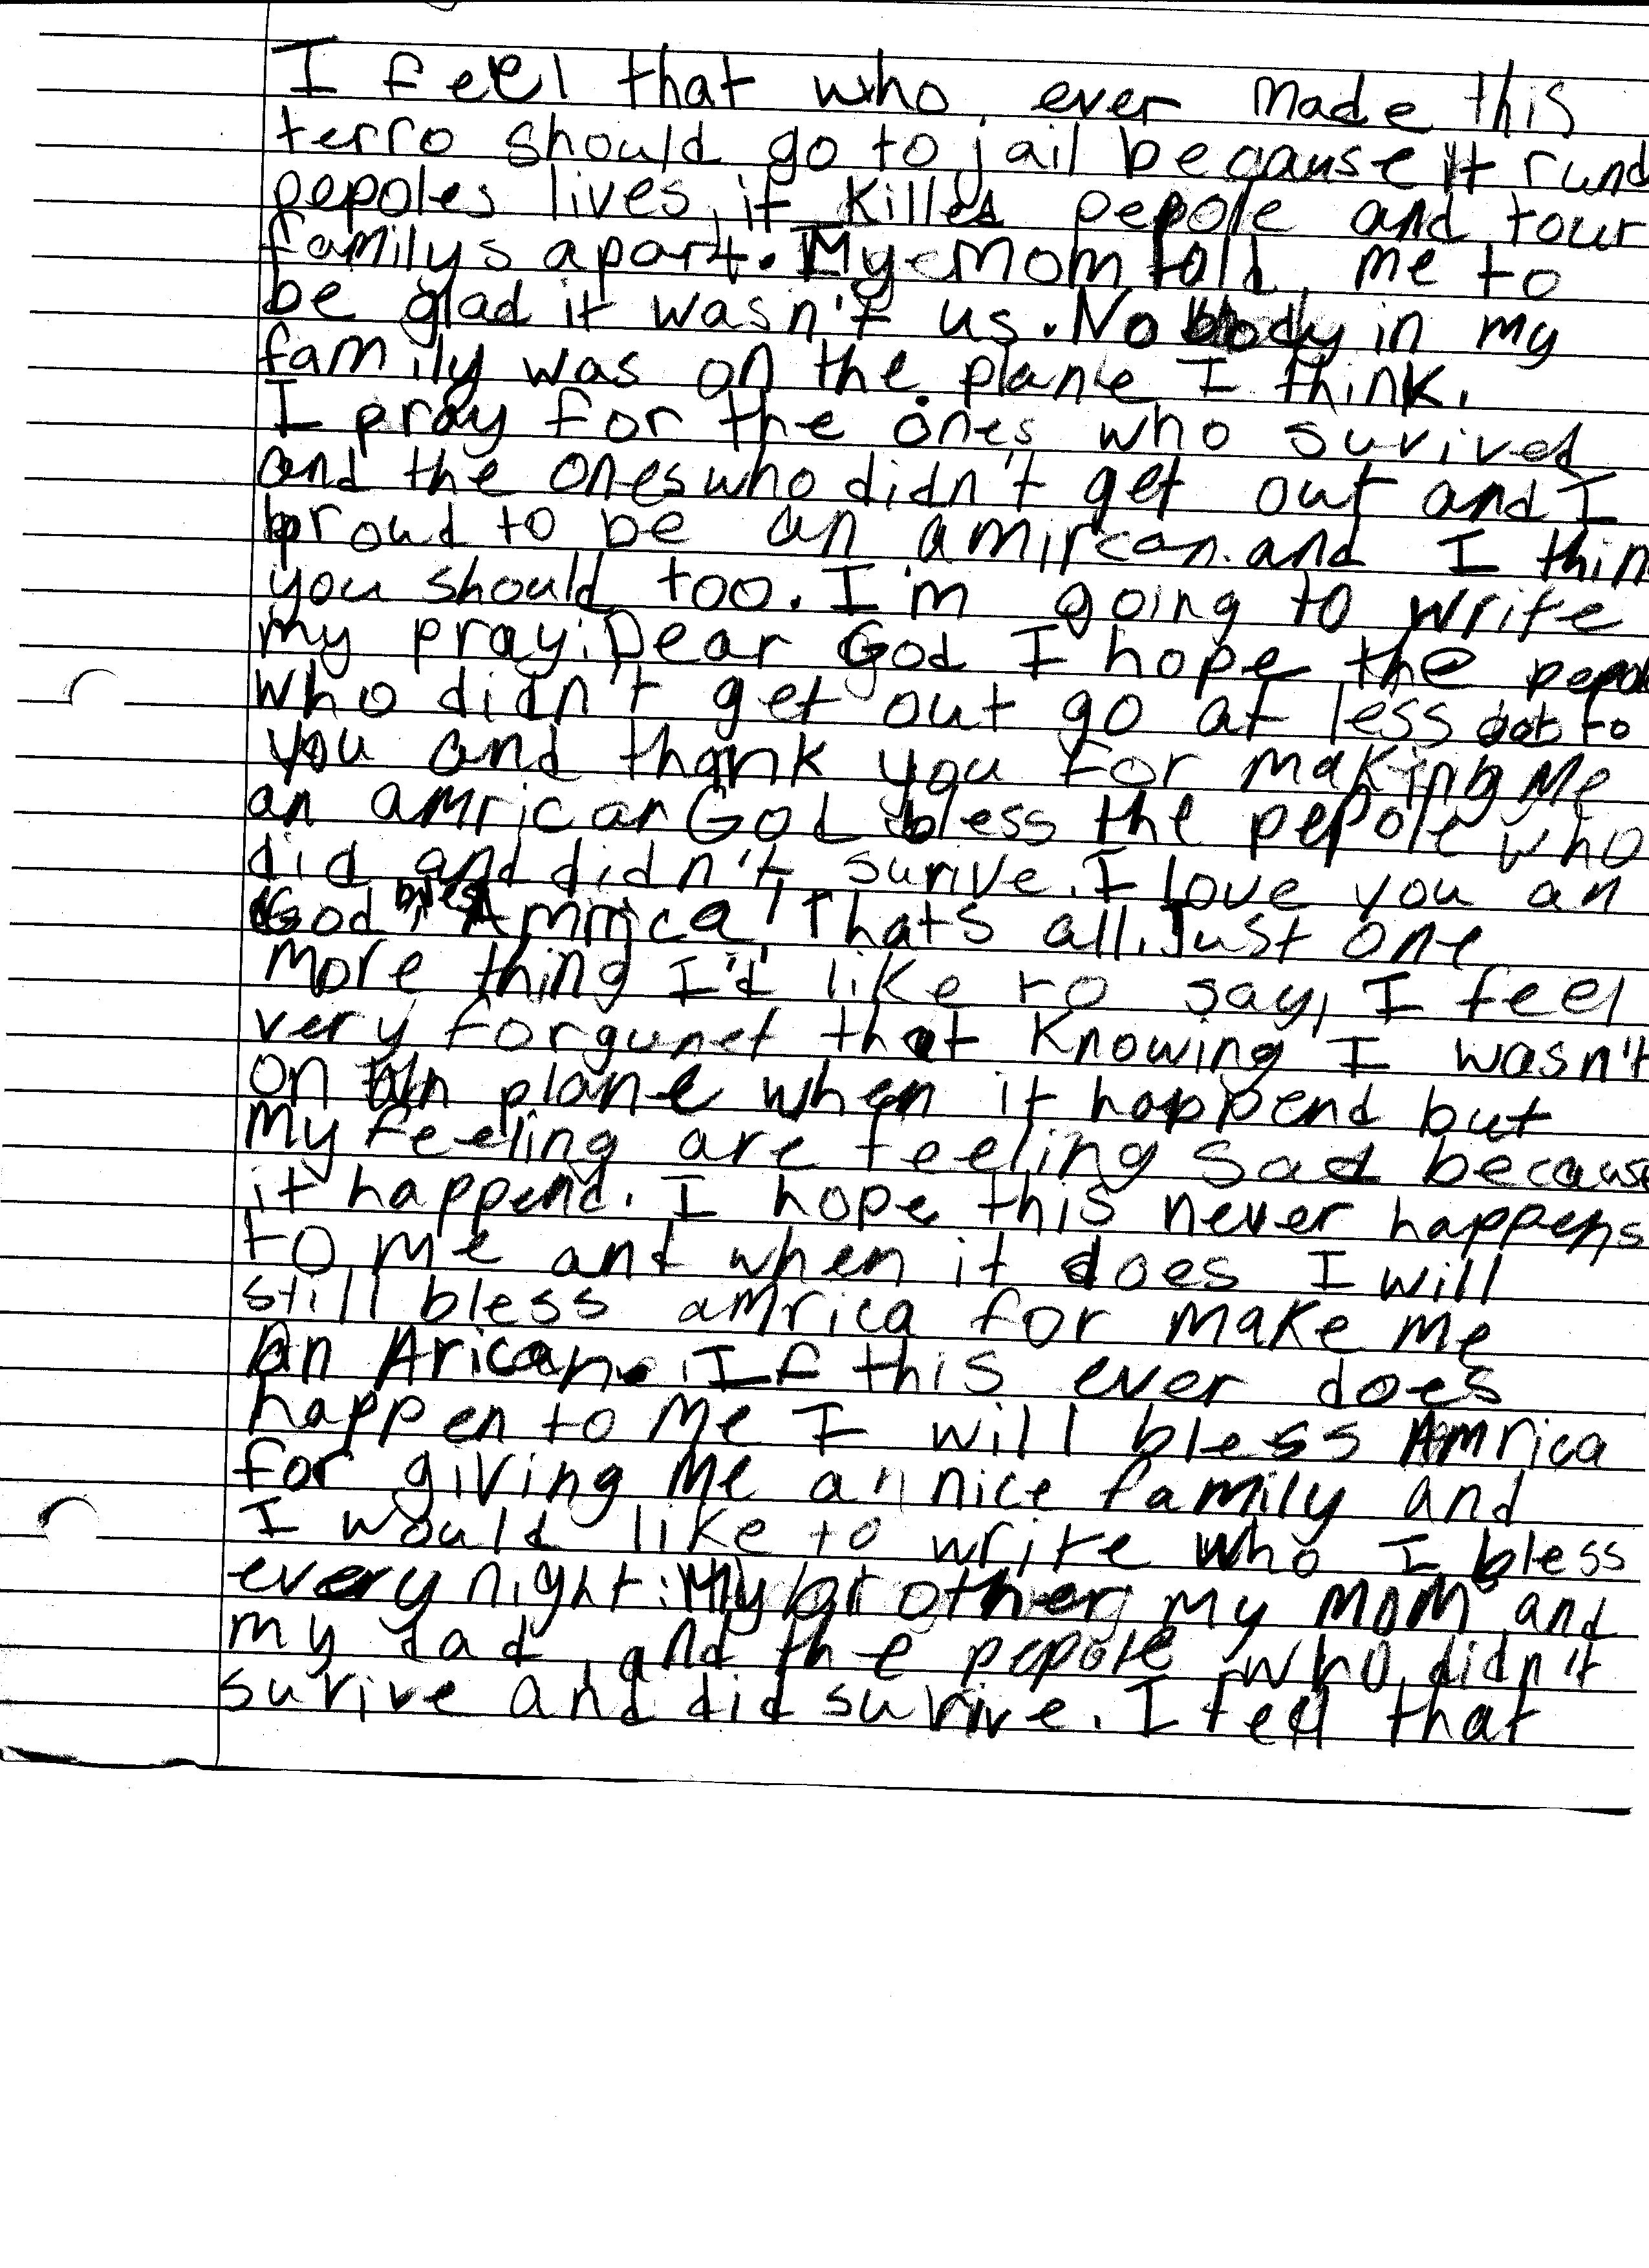 I feel that who ever made this
terro should go to jail because it rund
pepoles lives, it killed pepole and tour
familys apart. My mom told me to
be glad it wasn't us. No body in my
family was on the plane I think.
I pray for the ones who surived
and the ones who didn't get out and I
proud to be an amircan. and I thin
you should too. I'm going to write
my pray: Dear God I hope the pepole
who didn't get out go at less to
you and thank you for making me
an amrican God bless the pepole who
did and didn't surive. I love you an
God bless Amrica! Thats all. Just one
more thing I'd like to say, I feel
very forgunet that knowing I wasn't
on plane when it happend but
my feeling are feeling sad because
it happend. I hope this never happens
to me and when it does I will
still bless amrica for make me
an Arican. If this ever does
happen to me I will bless Amrica
for giving me a nice family and
I would like to write who I bless
every night: My brother, my mom and
my dad and the pepole who didn't
surive and did surive. I feel that